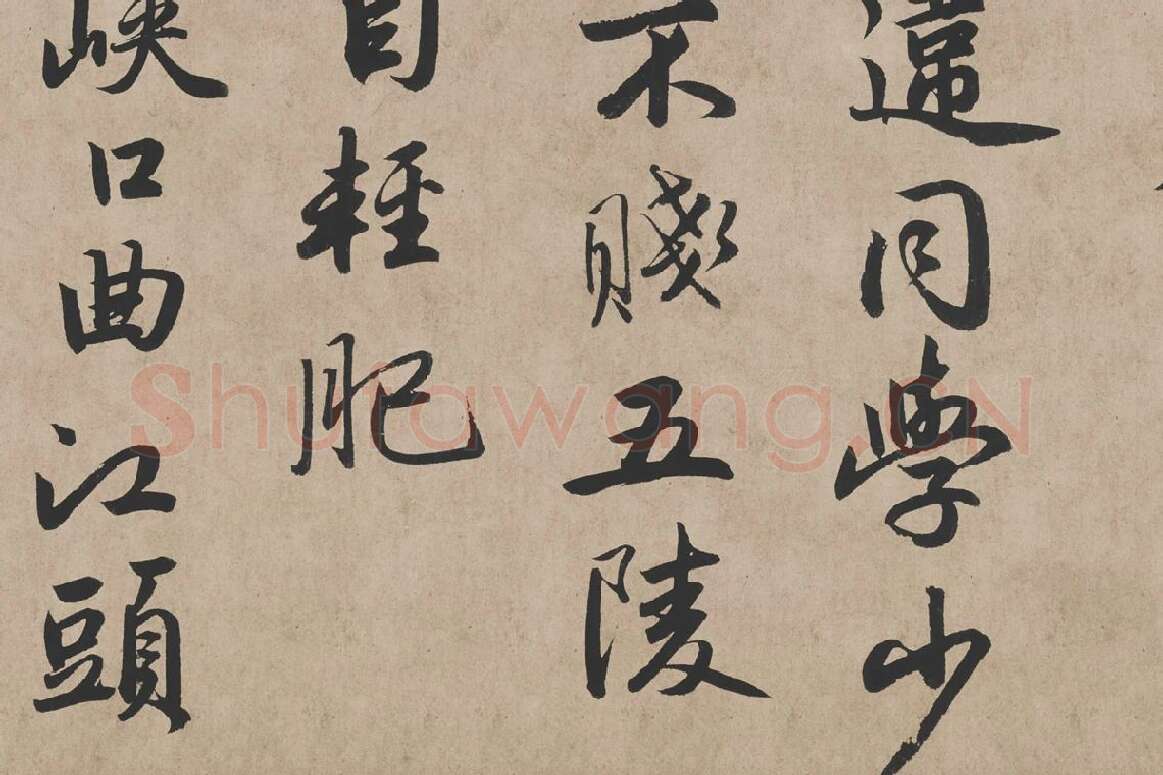 違同學少
不賤五陵
自輕肥
峽口曲江頭
Shufawang.CN